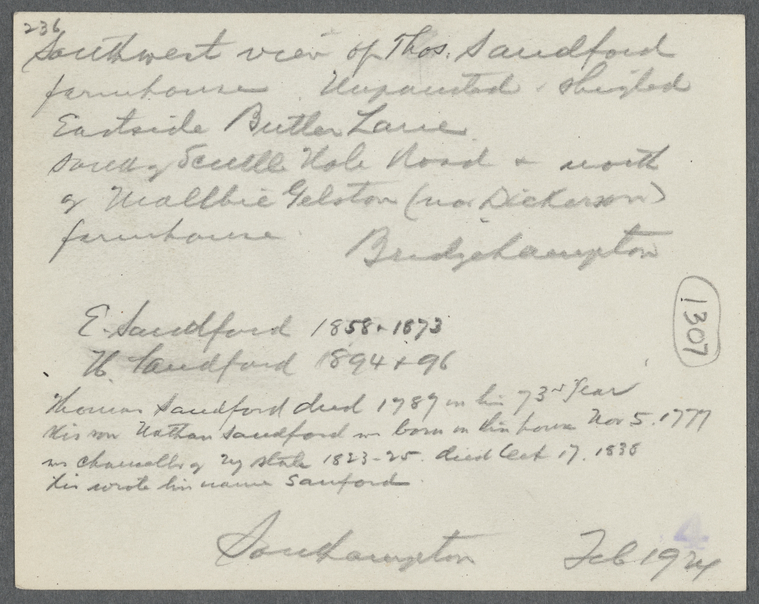 236
Southwest view of Thos. Sandford
farmhouse Unpainted, shigled
Eastside Butter Lane
south of Scuttle Hole Road + north
of Maltbie Gelston (now Dickerson)
farmhouse. Bridgehampton
1307
E. Sandford 1858 + 1873
H. Sandford 1894 + 96
Thomas Sandford died 1787 in his 73rd Year
His son Nathan Sandford was born in this house Nov 5. 1777
was Chancellor of NY State 1823-25. died Oct 17. 1838
He wrote his name Sanford
4
Southampton Feb 1924